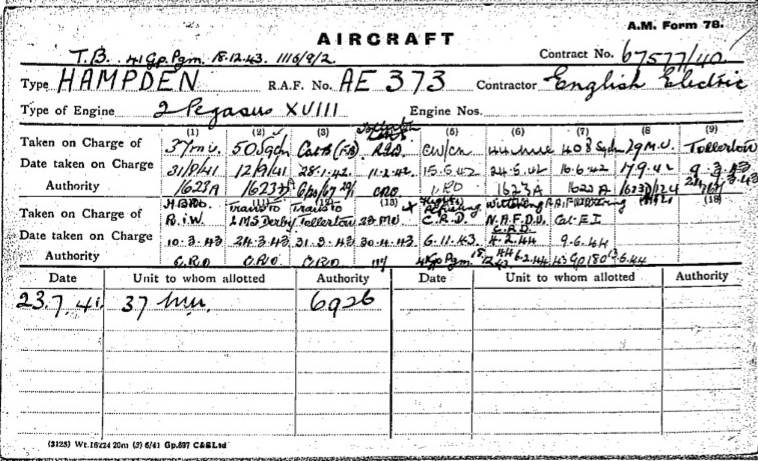 A.M. Form 78.
AIRCRAFT
T.B. 41 Gp. Pgm. 18.12.43. 1116/9/2 Contract No. 67577/40
Type HAMPDEN R.A.F. No. AE 373 Contractor English Electric
Type of Engine 2 Pegasus XVIII Engine Nos.
(1) (2) (3) (5) (6) (7) (8) (9)
Taken on Charge of 37 M.U. 50 Sqdn Cat B (F.B) R.I.W. CW/CN 44 MU 408 Sqdn 29 M.U. Tollerton
Date taken on Charge 31/8/41 12/9/41 28.1.42. 11.2.42 15.5.42 24.5.42 10.6.42 17.9.42 9.3.43
Authority 1623A C.R.O 1623A 1623A
(13) (18)
Taken on Charge of R.I.W. Trans to L.M.S Derby Trans to Tollerton 23 MU C.R.D. N.A.F.D.U. Cat. E.I
C.R.D.
Date taken on Charge 10.3.43 24.3.43 31.3.43 30.4.43 6.11.43. 4.2.44 9.6.44
Authority C.R.O C.R.O C.R.O 41 Gp Pgm 18.12.43 43 Gp
Date Unit to whom allotted Authority Date Unit to whom allotted Authority
23.7.41. 37 MU. 6926
(3125) Wt. 16224 20m (2) 6/41 Gp. 697 C&S Ltd